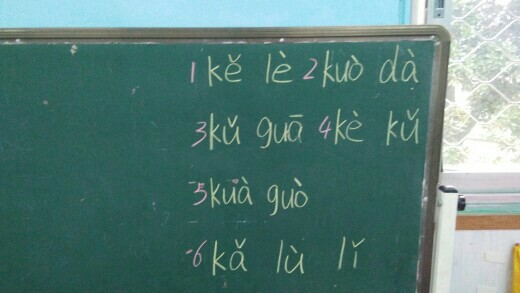 1 kě lè 2 kuò dà
3 kǔ guā 4 kè kǔ
5 kuà guò
6 kǎ lù lǐ